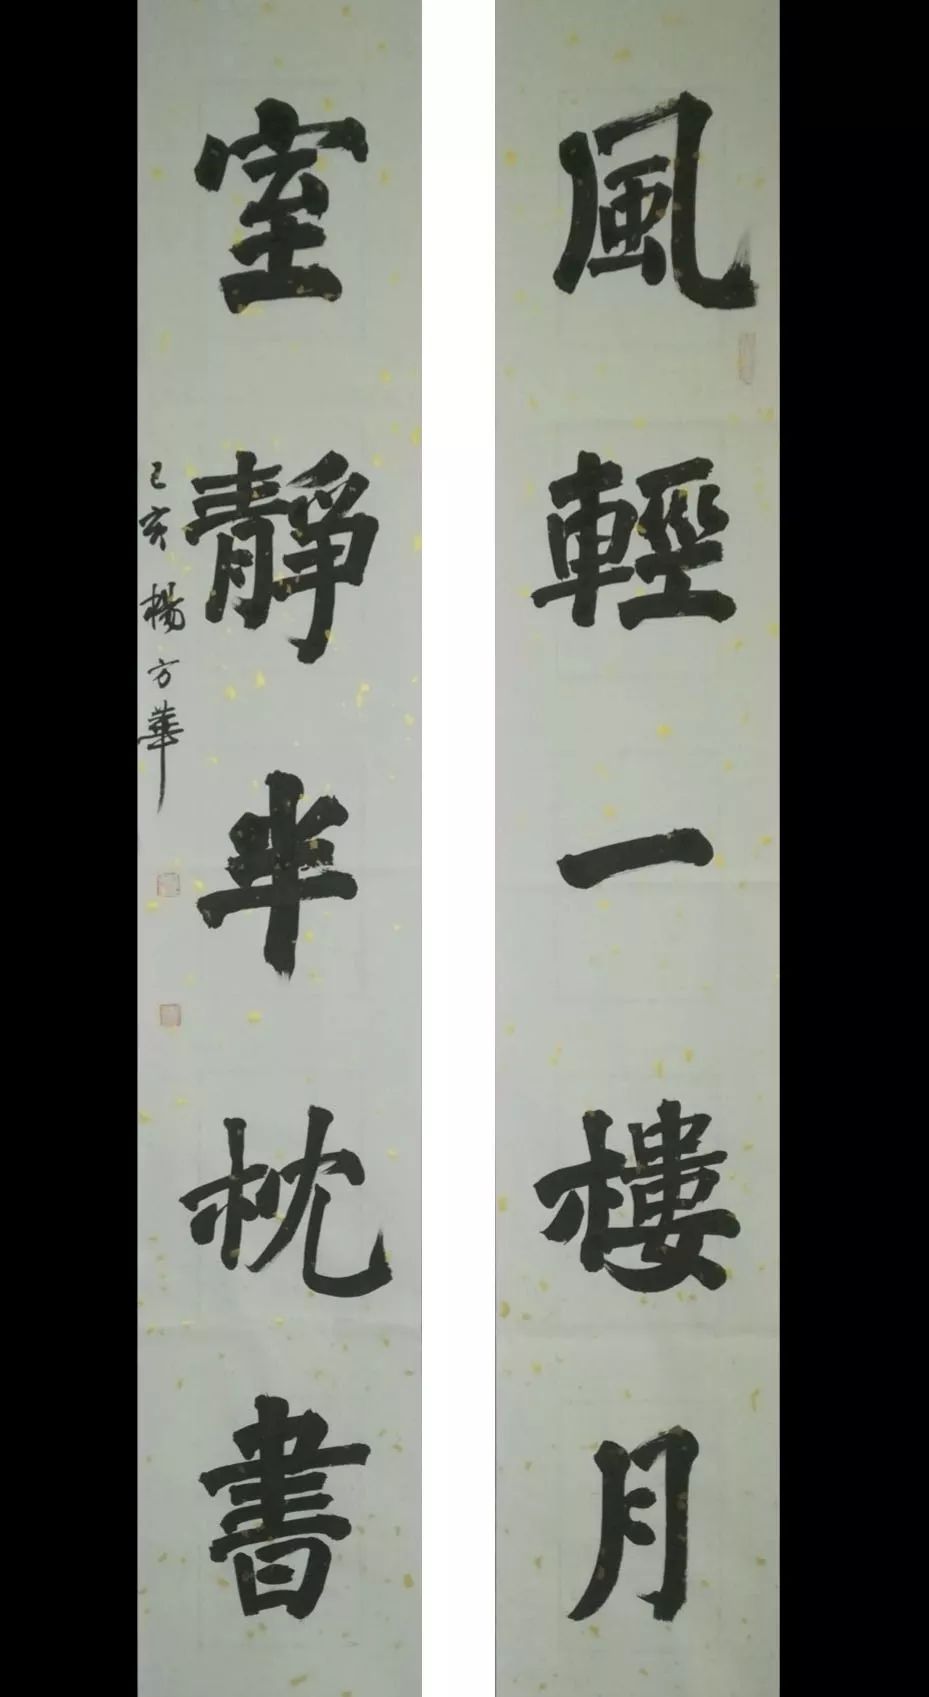 風輕一樓月
室靜半枕書
己亥 楊方華